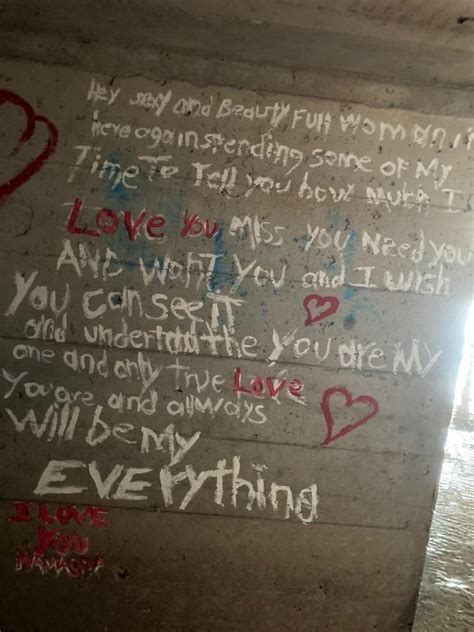 Hey sexy and Beauty Full Woman
here again spending some of My
Time To Tell you how Much I
Love You Miss you Need you
AND WANT You and I wish
You can see it
and undertand the you are My
one and only true Love
You are and allways
Will be My
EVErything
I LOVE
YOU